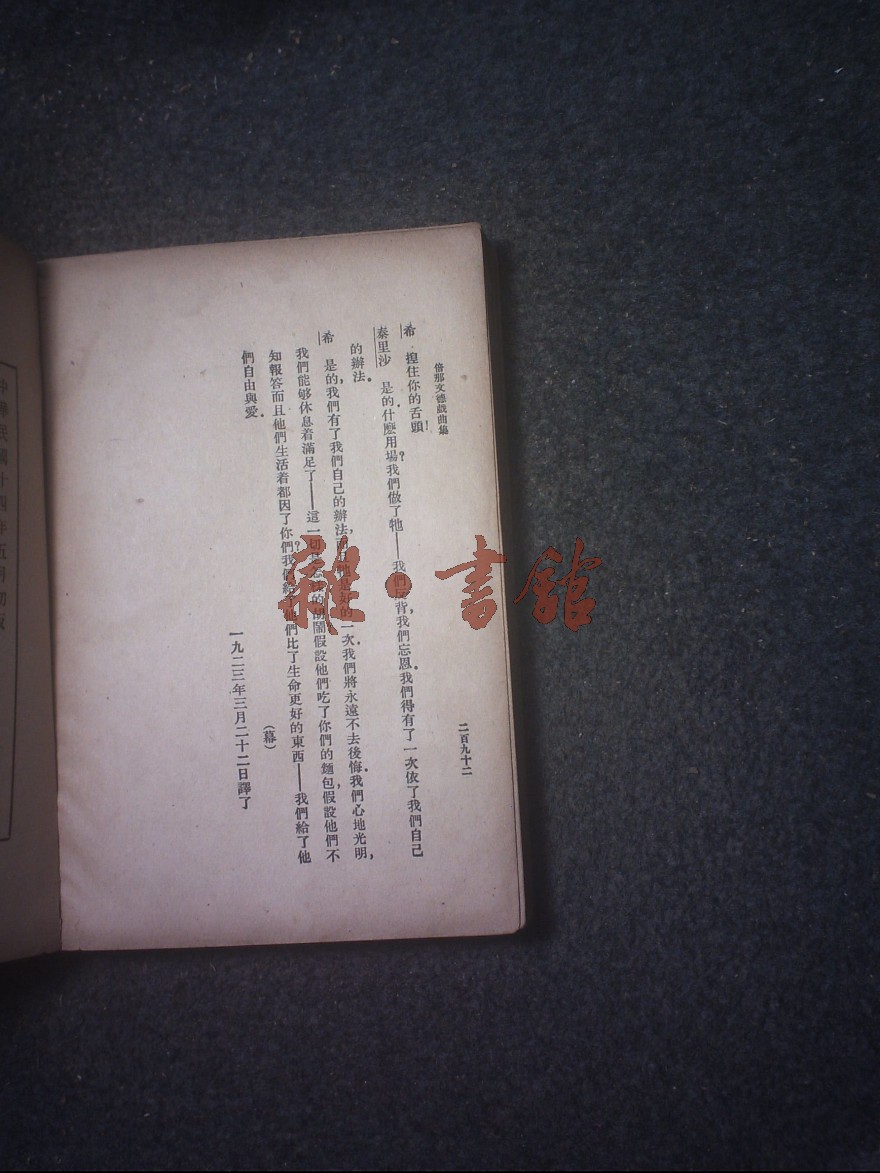 倍那文德戲曲集
二百九十二
希 揑住你的舌頭!
泰里沙 是的.什麽用場?我們做了牠——我們反背,我們忘恩.我們得有了一次依了我們自己
的辦法.
希 是的,我們有了我們自己的辦法,而且牠是好的一次.我們將永遠不去後悔.我們心地光明,
我們能够休息着滿足了——這一切是的胡鬧假設他們吃了你們的麵包,假設他們不
知報答而且他們生活着都因了你們?我們給了他們比了生命更好的東西——我們給了他
們自由與愛.
(幕)
一九二三年三月二十二日譯了
中華民國十四年五月初版
雜·書館